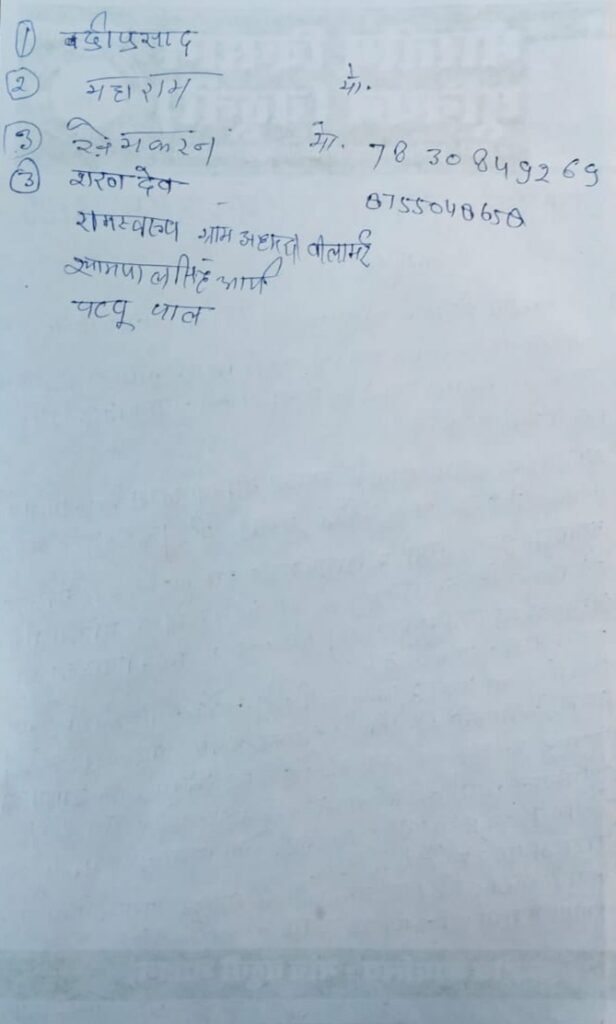 ① बद्रीप्रसाद
② महाराम मो.
③ खेमकरन मो. 7830849269
③ शरन देव 8755048658
रामस्वरूप ग्राम
सिंह आर्य
पटपू पाल